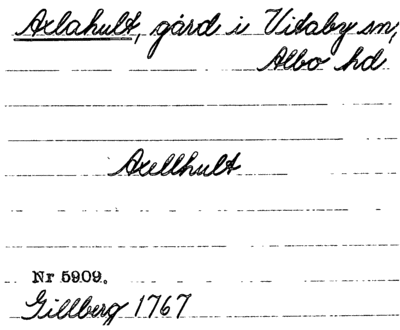 Axlahult, gård i Vitaby sn,
Albo hd
Axellhult
Nr 5909.
Gillberg 1767